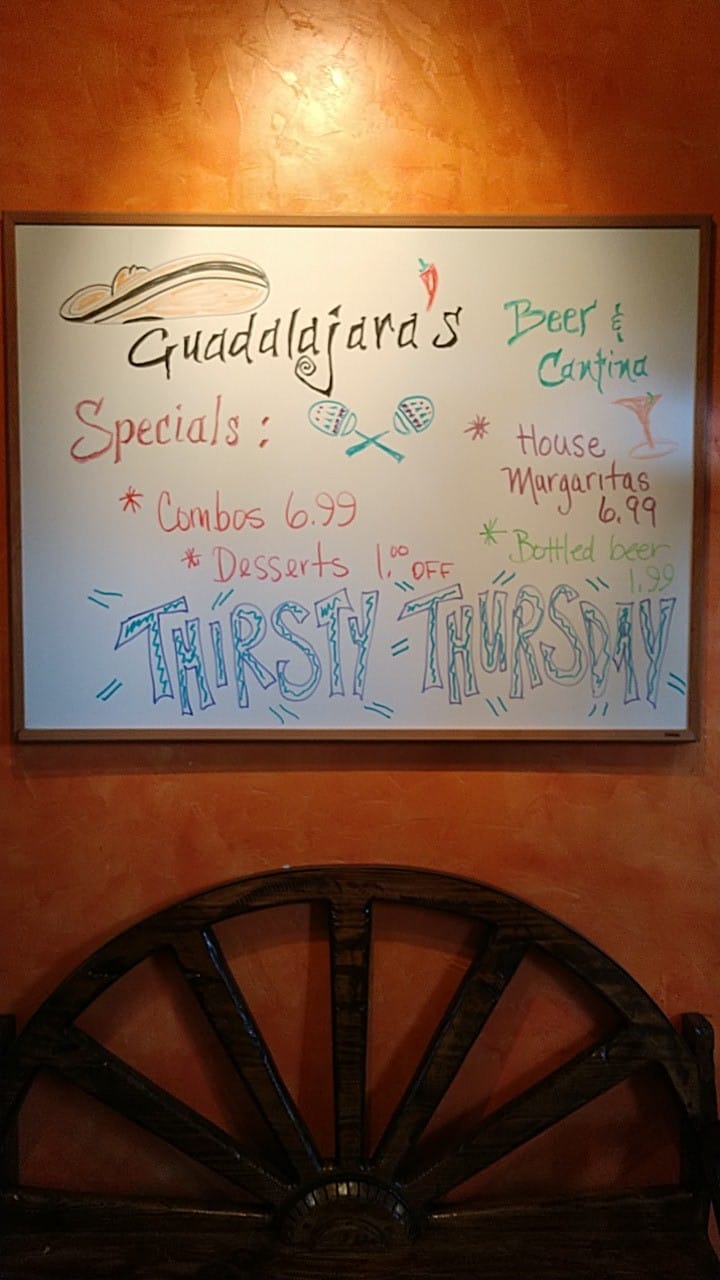 Guadalajara's
Specials:
* Combos 6.99
* Desserts 1.00 OFF
Beer &
Cantina
* House
Margaritas
6.99
* Bottled beer
1.99
THIRSTY THURSDAY